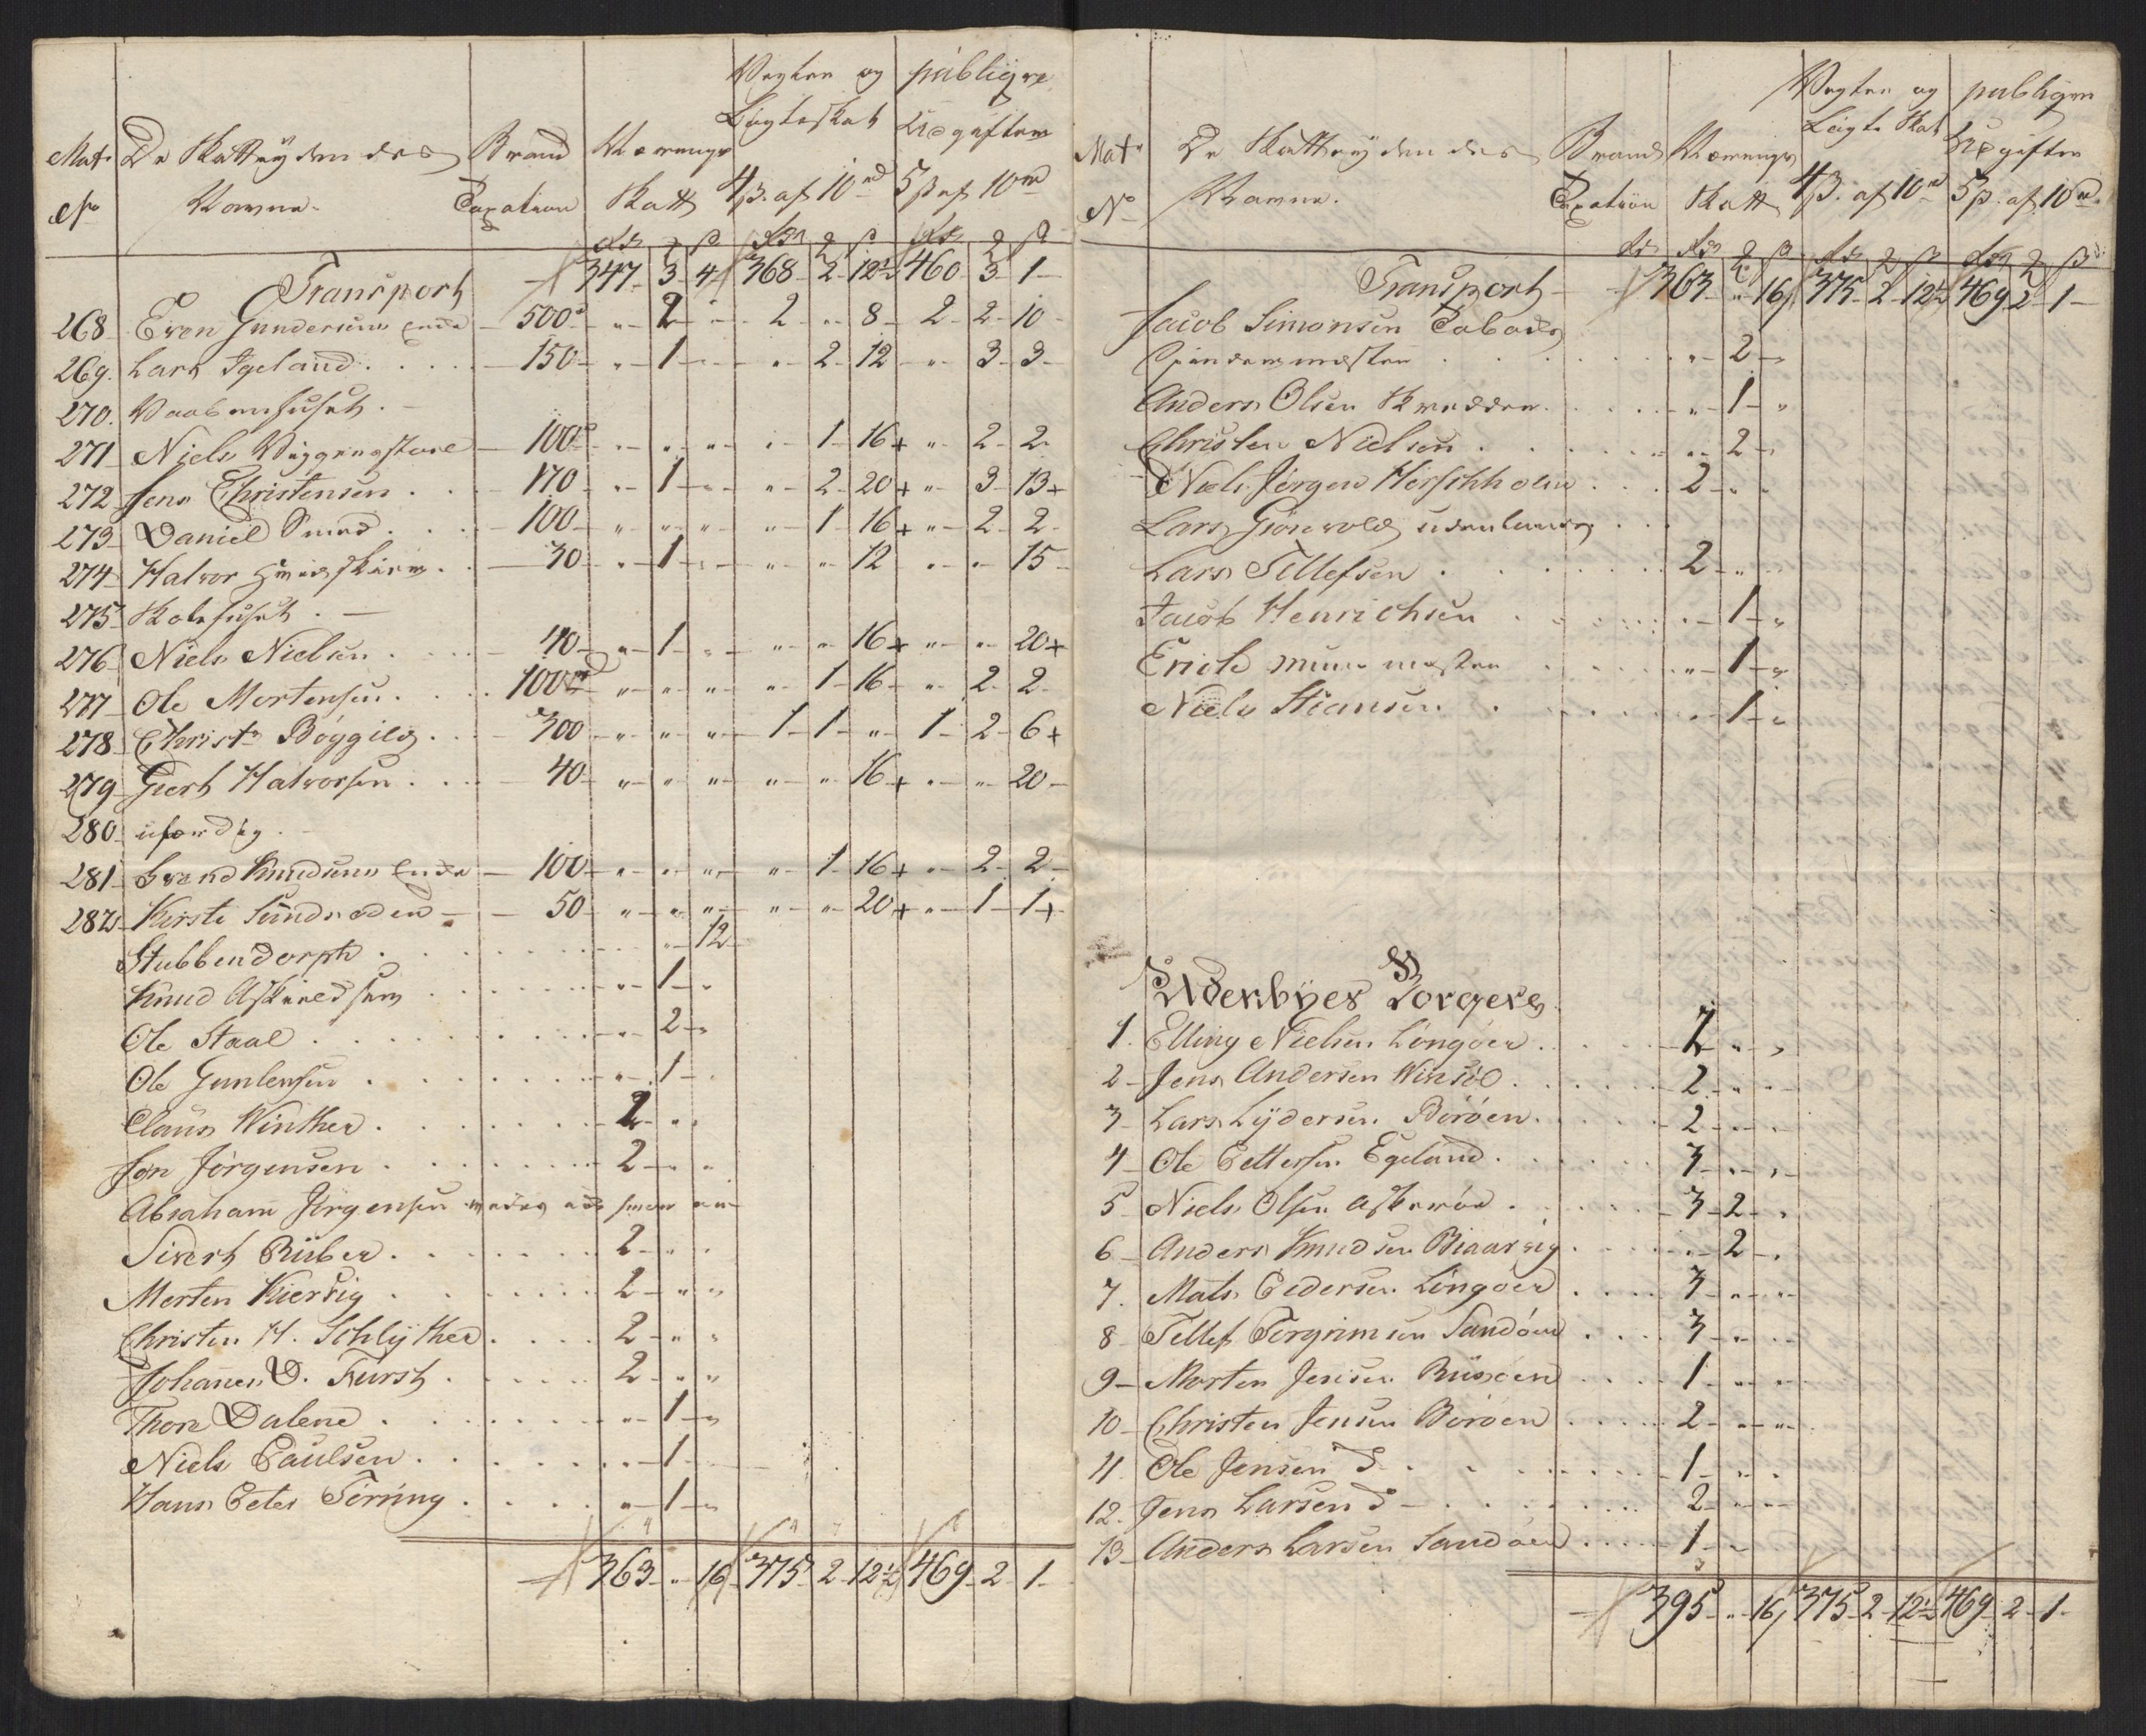 Vegter og publiqve
Lÿgteskat Udgifter
Mat. De Skatteÿdendes Brand Nærings
No Navne. Taxation Skatt 4 ß. af 10 rd 5 ß af 10 rd
Transport 347 3 4 368 2 12½ 460 3 1
268 Even Gundersens Enke 500 " 2 " 2 " 8 2 2 10
269. Lars Igeland 150 " 1 " " 2 12 " 3 3
270. Vaabenhuset.
271 Niels Vÿggenstare 100 " " " " 1 16+ " 2 2
272 Jens Christensen 170 " 1 " " 2 20+ " 3 13+
273 Daniel Smed 100 " " " " 1 16+ " 2 2
274 Halvor 30 " 1 " " " 12 " " 15
275 Skolehuset.
276 Niels Nielsen 40 " 1 " " " 16+ " " 20+
277 Ole Mortensen 100 " " " " 1 16 " 2 2
278 Christn Bøggild 300 " " " 1 1 " 1 2 6+
279 Giert Halvorsen 40 " " " " " 16+ " " 20
280 uferdig.
281 Svend Knudsens Enke 100 " " " " 1 16+ " 2 2
282 Kirsti Sundsøden 50 " " " " " 20+ " 1 1+
Stubbendorph " 12
Knud Askiredsen " 1 "
Ole Staal " 2 "
Ole Gunlensen " 1 "
Claus Winther 2 " "
Jøn Jørgensen 2 " "
Abraham Jørgensen
Sivert Rüber 2 " "
Morten Kiervig 2 " "
Christen H. Schlÿther 2 " "
Johannes D. Furst 2 " "
Thore Dalene " 1 "
Niels Paulsen " 1
Hans Peter Tørring " 1 "
363 " 16 375 2 12½ 469 2 1
Vegter og publiqve
Lÿgte Skat Udgifter
Mat. De Skatteÿdendes Brand Nærings
No Navne. Taxation Skatt 4 ß. af 10 rd 5 ß. af 10 rd.
Transport 363 " 16 375 2 12½ 469 2 1
Jacob Simonsen Tobaks
Spindermester " 2 "
Anders Olsen Skredder " 1 "
Christen Nielsen " 2 "
Niels Jørgen Hirschholm 2 " "
Lars Grønvold udenlands
Lars Tellefsen 2 " "
Jacob Henrichsen " 1 "
Erich muurmester " 1 "
Niels Stiansen " 1 "
Udenbÿes Borgere
1. Elling Nielsen Lÿngøer 2 " "
2 Jens Andersen Winsöl 2 " "
3 Lars Lÿdersen Borøen 2 " "
4 Ole Pettersen Egeland 3 " "
5 Niels Olsen Askerøe 3 2 "
6 Anders Knudsen Biaarvig " 2 "
7. Mats Pedersen Lÿngøer 3 " "
8 Tellef Torgrimsen Sandøen 3 " "
9 Morten Jensen Risøen 1 " "
10 Christen Jensen Borøen 2 " "
11. Ole Jensen do 1 " "
12. Jens Larsen do 2 " "
13 Anders Larsen Sandøen 1 "
395 " 16 375 2 12½ 469 2 1